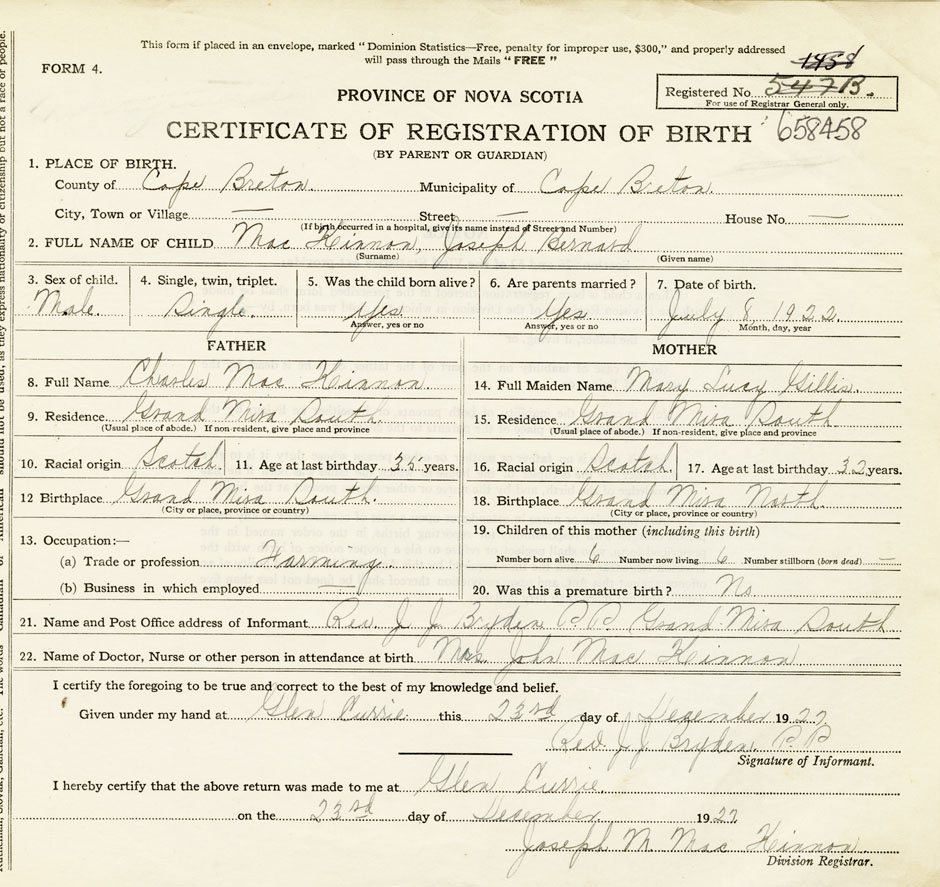 This form if placed in an envelope, marked "Dominion Statistics—Free, penalty for improper use, $300," and properly addressed
will pass through the Mails "FREE"
FORM 4.
1458
Registered No. 547B.
For use of Registrar General only.
PROVINCE OF NOVA SCOTIA
CERTIFICATE OF REGISTRATION OF BIRTH 658458
(BY PARENT OR GUARDIAN)
1. PLACE OF BIRTH.
County of Cape Breton Municipality of Cape Breton
City, Town or Village — Street — House No. —
(If birth occurred in a hospital, give its name instead of Street and Number)
2. FULL NAME OF CHILD Mac Kinnon, Joseph Bernard
(Surname) (Given name)
3. Sex of child. 4. Single, twin, triplet. 5. Was the child born alive? 6. Are parents married? 7. Date of birth.
Male. Single. Yes Yes July 8, 1922.
Answer, yes or no Answer, yes or no Month, day, year
FATHER MOTHER
8. Full Name Charles Mac Kinnon. 14. Full Maiden Name Mary Lucy Gillis.
9. Residence Grand Mira South. 15. Residence Grand Mira South
(Usual place of abode.) If non-resident, give place and province (Usual place of abode.) If non-resident, give place and province
10. Racial origin Scotch 11. Age at last birthday 35 years. 16. Racial origin Scotch 17. Age at last birthday 32 years.
12 Birthplace Grand Mira South. 18. Birthplace Grand Mira North.
(City or place, province or country) (City or place, province or country)
13. Occupation:— 19. Children of this mother (including this birth)
(a) Trade or profession Farming. Number born alive 6 Number now living 6 Number stillborn (born dead) —
(b) Business in which employed — 20. Was this a premature birth? No.
21. Name and Post Office address of Informant Rev. J. J. Bryden P.P. Grand Mira South
22. Name of Doctor, Nurse or other person in attendance at birth Mrs. John Mac Kinnon
I certify the foregoing to be true and correct to the best of my knowledge and belief.
Given under my hand at Glen Currie this 23rd day of December 1922
Rev. J. J. Bryden. P.P.
Signature of Informant.
I hereby certify that the above return was made to me at Glen Currie
on the 23rd day of December 1922
Joseph M. Mac Kinnon
Division Registrar.